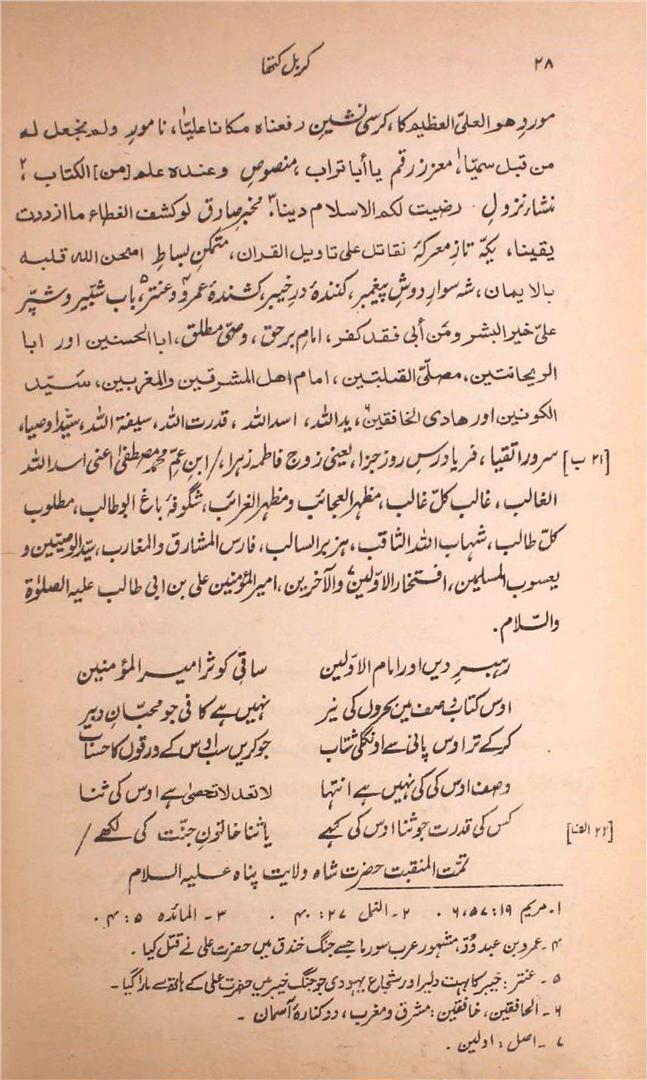 ۲۸ کربل کتھا
موردِ هو العلیّ العظیم کا، کرسی نشینِ رفعناه مکانا علیّا، نامورِ ولم نجعل له
من قبل سمیّا۱، معززِ رقم یا أبا تراب، منصوصِ وعنده علم [من] الکتاب۲،
نشارِ نزولِ رضیت لکم الاسلام دینا۳، مخبرِ صادق لو کشف الغطاء ما ازددت
یقینا، یکّہ تازِ معرکۂ نقاتل علی تاویل القران، متمکنِ بساطِ امتحن الله قلبه
بالایمان، شہ سوارِ دوشِ پیغمبر، کنندۂ درِ خیبر، کشندۂ عمرو۴ و عنتر۵، باب شبّیر و شبّر
علیّ خیر البشر ومَن أبی فقد کفر، امامِ برحق، وصیّ مطلق، ابا الحسنین اور ابا
الریحانتین، مصلّی القبلتین، امام اهل المشرقین والمغربین، سَیّد
الکونین اور هادی الخافقین۶، ید اللہ، اسد اللہ، قدرت اللہ، سیفۃ اللہ، سیّد اوصیا،
[۲۱ ب] سرورِ اتقیا، فریادرسِ روزِ جزا، یعنی زوجِ فاطمہ زہرا، / ابن عمِّ محمد مصطفیٰ اعنی اسد اللہ
الغالب، غالب کلّ غالب، مظہر العجائب و مظہر الغرائب، شگوفۂ باغِ ابو طالب، مطلوب
کلّ طالب، شہاب اللہ الثاقب، ہزبر السالب، فارس المشارق و المغارب، سیّد الوصیّین و
یعسوب المسلمین، افتخار الاوّلین۷ والآخرین، امیر المؤمنین علی بن ابی طالب علیہ الصلوٰۃ
والسّلام۔
رہبرِ دیں اور امام الاوّلین ساقیِ کوثر امیر المؤمنین
اوس کتابِ وصف میں بحروں کی نیر نہیں ہے کافی جو محبّانِ دبیر
کر کے تر اوس پانی سے اونگلی شتاب جو کریں سب اوس کے ورقوں کا حساب
وصف اوس کی کی نہیں ہے انتہا لا تعد لا تحصیٰ ہے اوس کی ثنا
[۲۲ الف] کس کی قدرت جو ثنا اوس کی کہے یا ثنا خاتونِ جنّت کی لکھے /
تمّت المنقبت حضرت شاہ ولایت پناہ علیہ السلام
۱۔ مریم ۱۹: ۵۷، ۶۔ ۲۔ النمل ۲۷: ۴۰۔ ۳۔ المائدہ ۵: ۴۔
۴۔ عمرو بن عبد وُدّ، مشہور عرب سورما جسے جنگ خندق میں حضرت علی نے قتل کیا۔
۵۔ عنتر: خیبر کا بہت دلیر اور شجاع یہودی جو جنگِ خیبر میں حضرت علی کے ہاتھ سے مارا گیا۔
۶۔ الخافقین، خافقین: مشرق و مغرب، دو کنارۂ آسمان۔
۷۔ اصل: اولین۔